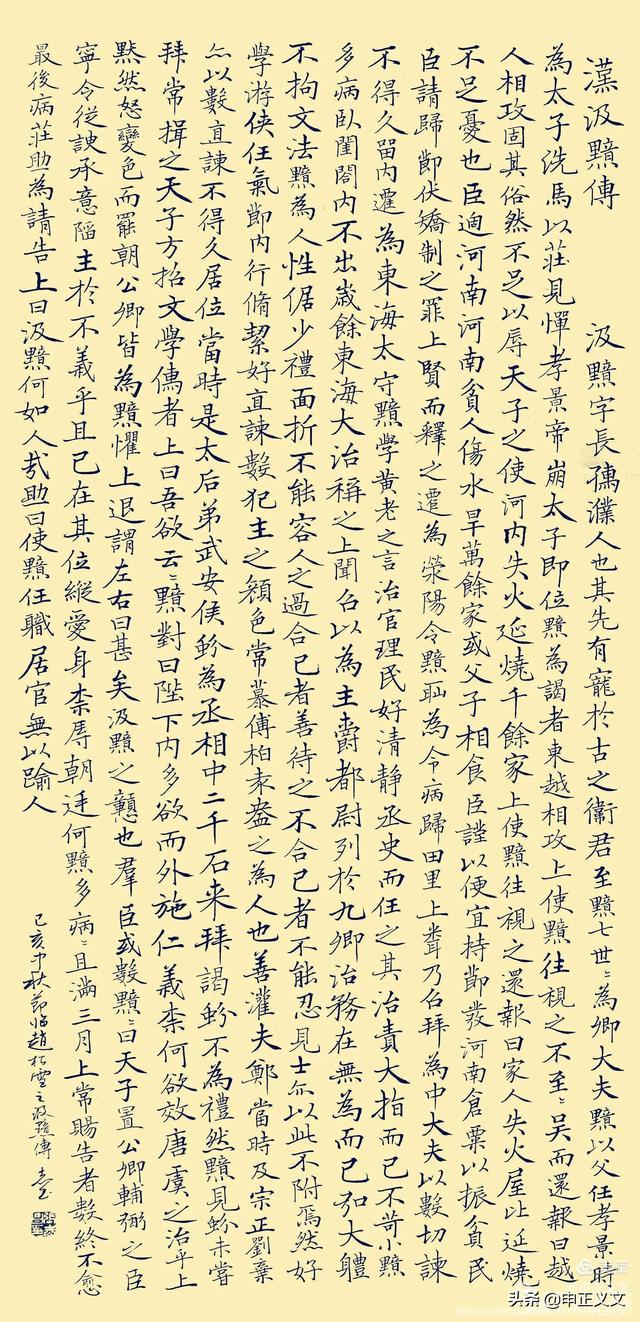 漢汲黯傳 汲黯字長孺濮人也其先有寵於古之衛君至黯七世〻為卿大夫黯以父任孝景時
為太子洗馬以莊見憚孝景帝崩太子即位黯為謁者東越相攻上使黯往視之不至〻吳而還報曰越
人相攻固其俗然不足以辱天子之使河内失火延燒千餘家上使黯往視之還報曰家人失火屋比延燒
不足憂也臣過河南河南貧人傷水旱萬餘家或父子相食臣謹以便宜持節發河南倉粟以振貧民
臣請歸節伏矯制之罪上賢而釋之遷為滎陽令黯恥為令病歸田里上聞乃召拜為中大夫以數切諫
不得久留内遷為東海太守黯學黃老之言治官理民好清静丞史而任之其治責大指而已不苛小黯
多病臥閨閤内不出歲餘東海大治稱之上聞召以為主爵都尉列於九卿治務在無為而已弘大體
不拘文法黯為人性倨少禮面折不能容人之過合己者善待之不合己者不能忍見士亦以此不附焉然好
學游俠任氣節内行脩絜好直諫數犯主之顏色常慕傅柏袁盎之為人也善灌夫鄭當時及宗正劉棄
亦以數直諫不得久居位當時是太后弟武安侯蚡為丞相中二千石来拜謁蚡不為禮然黯見蚡未嘗
拜常揖之天子方招文學儒者上曰吾欲云〻黯對曰陛下内多欲而外施仁義柰何欲效唐虞之治乎上
黙然怒變色而罷朝公卿皆為黯懼上退謂左右曰甚矣汲黯之戇也羣臣或數黯〻曰天子置公卿輔弼之臣
寧令從諛承意陷主於不義乎且已在其位縱愛身柰辱朝廷何黯多病〻且滿三月上常賜告者數終不愈
最後病莊助為請告上曰汲黯何如人哉助曰使黯任職居官無以踰人
己亥中秋節臨趙松雪之汲黯傳
头条 @申正义文